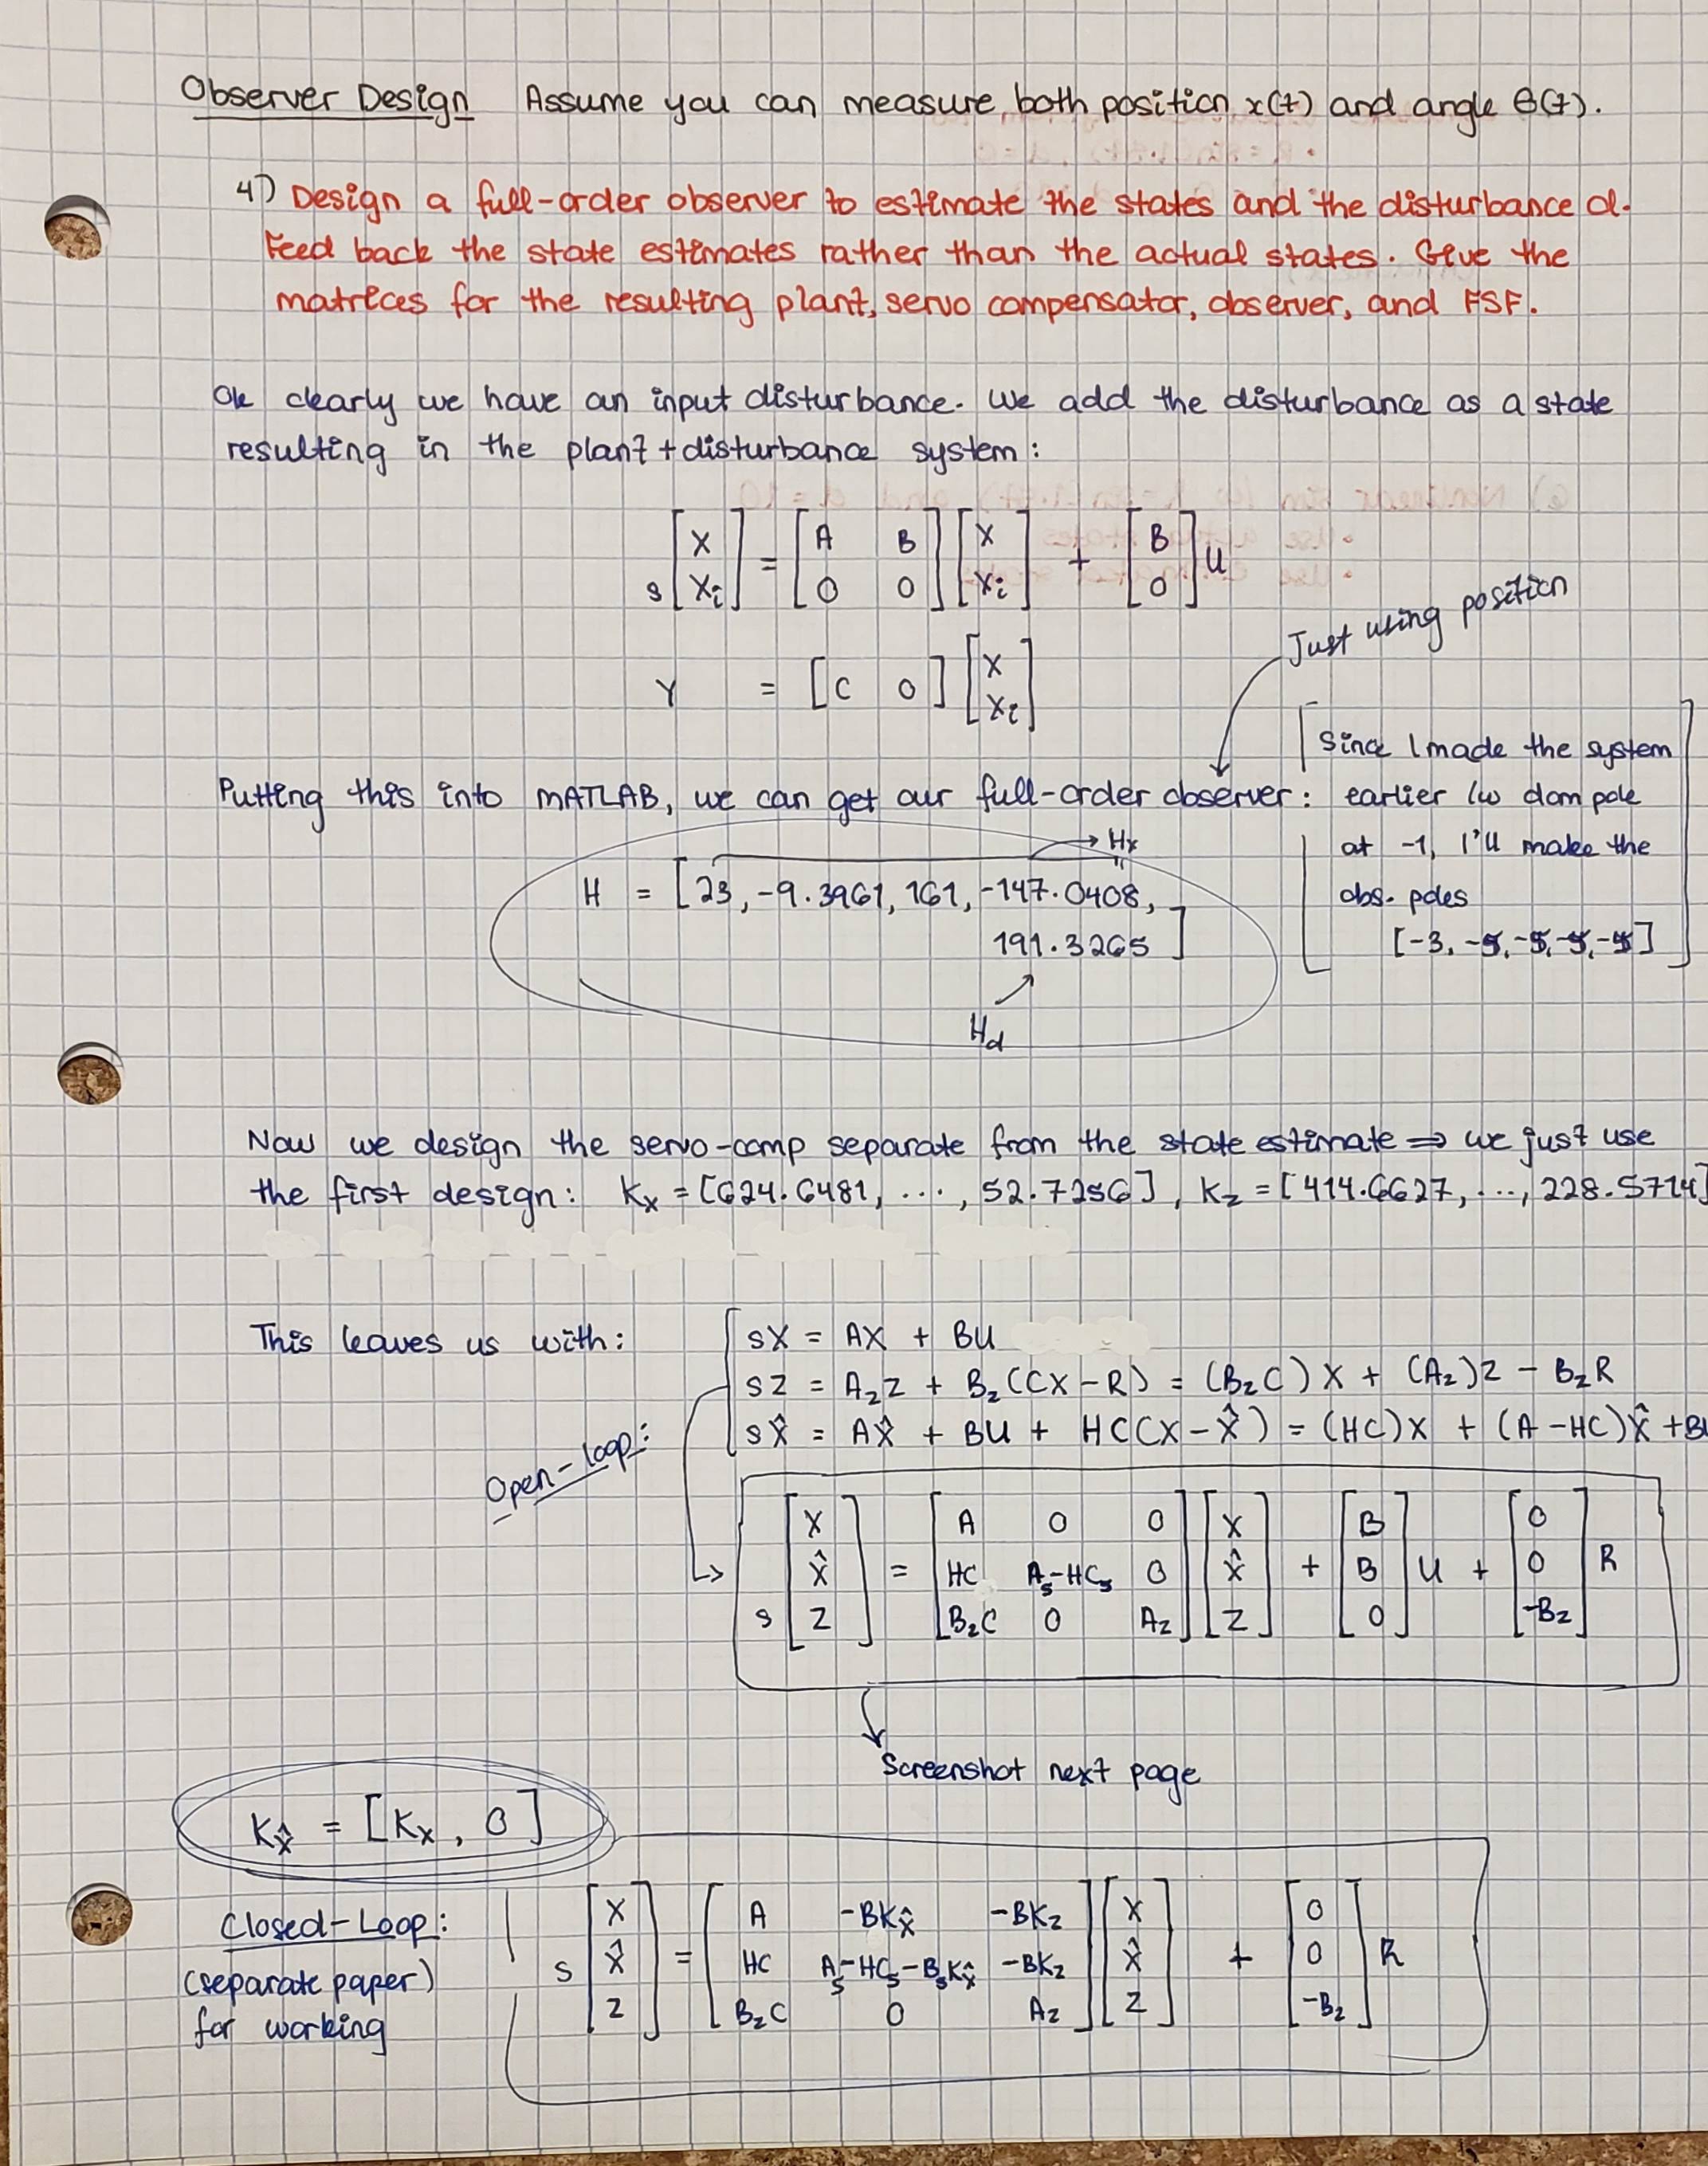 Observer Design Assume you can measure both position x(t) and angle θ(t).
4) Design a full-order observer to estimate the states and the disturbance d.
Feed back the state estimates rather than the actual states. Give the
matrices for the resulting plant, servo compensator, observer, and FSF.
Ok clearly we have an input disturbance. We add the disturbance as a state
resulting in the plant + disturbance system:
s [X; Xi] = [A B; 0 0] [X; Xi] + [B; 0] U
Just using position
Y = [C 0] [X; Xi]
Putting this into MATLAB, we can get our full-order observer:
[Since I made the system
earlier /w dom pole
at -1, I'll make the
obs. poles
[-3, -5, -5, -5, -5]]
→ Hx
H = [23, -9.3961, 161, -147.0408,
191.3265]
Hd
Now we design the servo-comp separate from the state estimate ⇒ we just use
the first design: Kx = [624.6481, ..., 52.7256], Kz = [414.6627, ..., 228.5714]
This leaves us with:
sX = AX + BU
sZ = AzZ + Bz(CX-R) = (BzC)X + (Az)Z - BzR
sX̂ = AX̂ + BU + HC(X-X̂) = (HC)X + (A-HC)X̂ + BU
Open-loop:
s [X; X̂; Z] = [A 0 0; HC As-HCs 0; BzC 0 Az] [X; X̂; Z] + [B; B; 0] U + [0; 0; -Bz] R
Screenshot next page
Kx̂ = [Kx, 0]
Closed-Loop:
(separate paper)
for working
s [X; X̂; Z] = [A -BKx̂ -BKz; HC As-HCs-BsKx̂ -BKz; BzC 0 Az] [X; X̂; Z] + [0; 0; -Bz] R